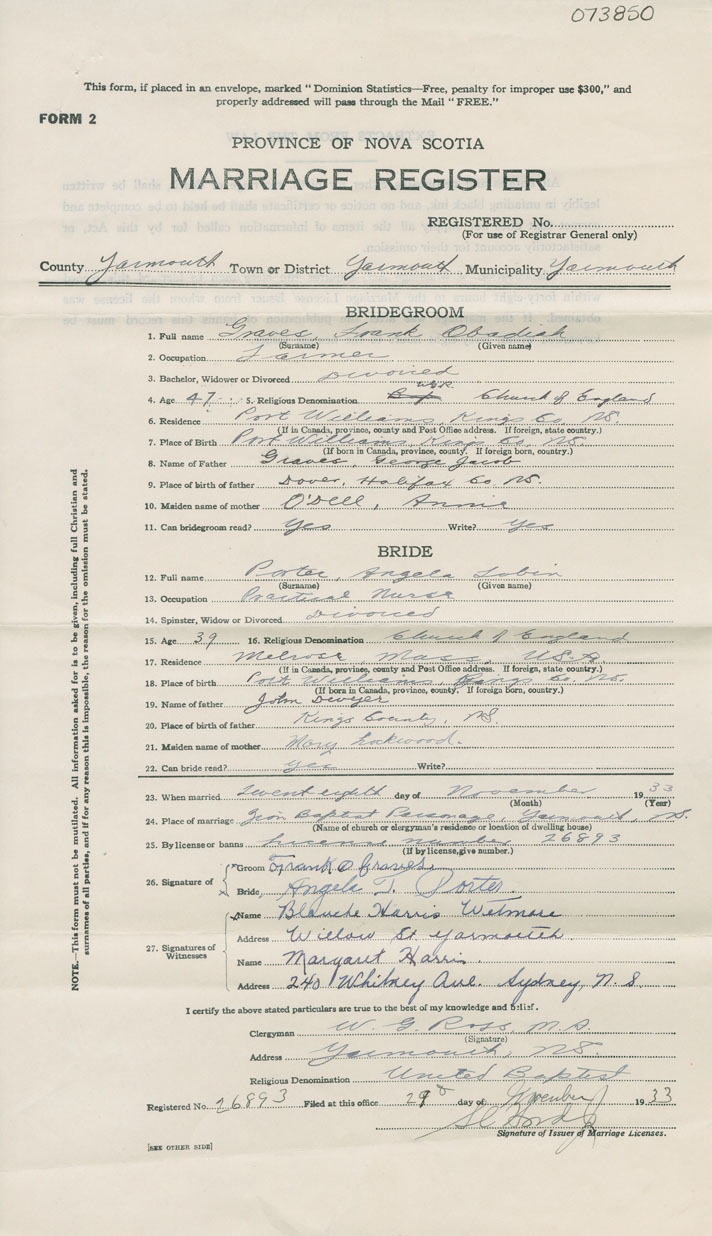 073850
This form, if placed in an envelope, marked "Dominion Statistics—Free, penalty for improper use $300," and
properly addressed will pass through the Mail "FREE."
FORM 2
PROVINCE OF NOVA SCOTIA
MARRIAGE REGISTER
REGISTERED No.
(For use of Registrar General only)
County Yarmouth Town or District Yarmouth Municipality Yarmouth
BRIDEGROOM
1. Full name Graves, Frank Obadiah
(Surname) (Given name)
2. Occupation Farmer
3. Bachelor, Widower or Divorced Divorced
4. Age 47 5. Religious Denomination W.G.R. Church of England
6. Residence Port Williams, Kings Co, NS.
(If in Canada, province, county and Post Office address. If foreign, state country.)
7. Place of Birth Port Williams, Kings Co. NS.
(If born in Canada, province, county. If foreign born, country.)
8. Name of Father Graves, George Jacob
9. Place of birth of father Dover, Halifax Co NS.
10. Maiden name of mother O'Dell, Annie
11. Can bridegroom read? Yes Write? Yes
BRIDE
12. Full name Porter, Angela Tobin
(Surname) (Given name)
13. Occupation Practical Nurse
14. Spinster, Widow or Divorced Divorced
15. Age 39 16. Religious Denomination Church of England
17. Residence Melrose, Mass, U.S.A.
(If in Canada, province, county and Post Office address. If foreign, state country.)
18. Place of birth Port Williams, Kings Co. NS.
(If born in Canada, province, county. If foreign born, country.)
19. Name of father John Dwyer
20. Place of birth of father Kings County, NS.
21. Maiden name of mother Mary Lockwood.
22. Can bride read? Yes Write?
23. When married Twent eighth day of November 1933
(Month) (Year)
24. Place of marriage Zion Baptist Parsonage, Yarmouth, NS.
(Name of church or clergyman's residence or location of dwelling house)
25. By license or banns License number 26893
(If by license, give number.)
26. Signature of
Groom Frank O Graves
Bride Angela T. Porter.
27. Signatures of Witnesses
Name Blanche Harris Wetmore
Address Willow St Yarmouth
Name Margaret Harris.
Address 240 Whitney Ave. Sydney, N.S.
I certify the above stated particulars are true to the best of my knowledge and belief.
Clergyman W. G. Ross, M.A.
(Signature)
Address Yarmouth, NS.
Religious Denomination United Baptist
Registered No. 26893 Filed at this office 29 day of November 1933
Signature of Issuer of Marriage Licenses.
[SEE OTHER SIDE]
NOTE.—This form must not be mutilated. All information asked for is to be given, including full Christian and
surnames of all parties, and if for any reason this is impossible, the reason for the omission must be stated.